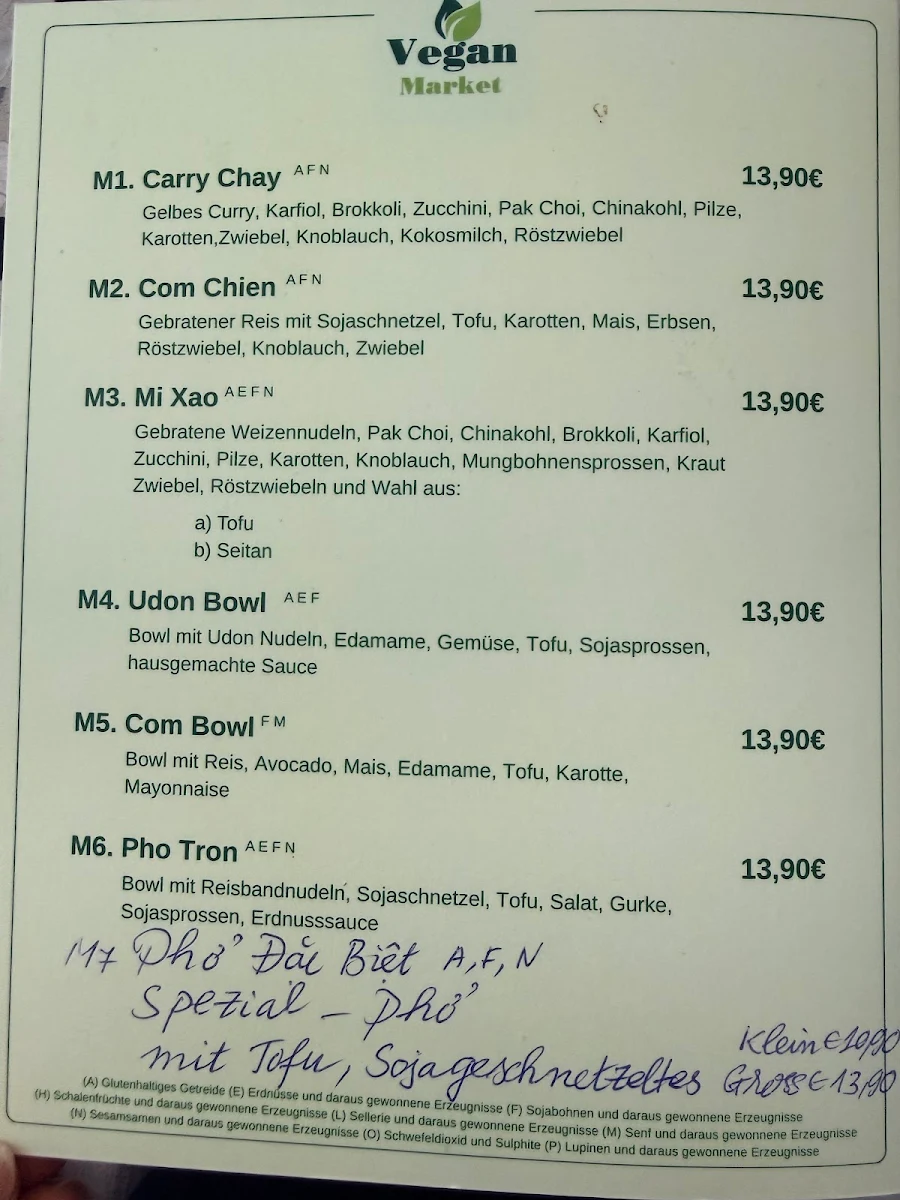 Vegan
Market
M1. Carry Chay A F N 13,90€
Gelbes Curry, Karfiol, Brokkoli, Zucchini, Pak Choi, Chinakohl, Pilze,
Karotten,Zwiebel, Knoblauch, Kokosmilch, Röstzwiebel
M2. Com Chien A F N 13,90€
Gebratener Reis mit Sojaschnetzel, Tofu, Karotten, Mais, Erbsen,
Röstzwiebel, Knoblauch, Zwiebel
M3. Mi Xao A E F N 13,90€
Gebratene Weizennudeln, Pak Choi, Chinakohl, Brokkoli, Karfiol,
Zucchini, Pilze, Karotten, Knoblauch, Mungbohnensprossen, Kraut
Zwiebel, Röstzwiebeln und Wahl aus:
a) Tofu
b) Seitan
M4. Udon Bowl A E F 13,90€
Bowl mit Udon Nudeln, Edamame, Gemüse, Tofu, Sojasprossen,
hausgemachte Sauce
M5. Com Bowl F M 13,90€
Bowl mit Reis, Avocado, Mais, Edamame, Tofu, Karotte,
Mayonnaise
M6. Pho Tron A E F N 13,90€
Bowl mit Reisbandnudeln, Sojaschnetzel, Tofu, Salat, Gurke,
Sojasprossen, Erdnusssauce
M7 Phở Đắc Biêt A, F, N
Spezial - Phở
Klein € 10,90
mit Tofu, Sojageschnetzeltes Gross € 13,90
(A) Glutenhaltiges Getreide (E) Erdnüsse und daraus gewonnene Erzeugnisse (F) Sojabohnen und daraus gewonnene Erzeugnisse
(H) Schalenfrüchte und daraus gewonnene Erzeugnisse (L) Sellerie und daraus gewonnene Erzeugnisse (M) Senf und daraus gewonnene Erzeugnisse
(N) Sesamsamen und daraus gewonnene Erzeugnisse (O) Schwefeldioxid und Sulphite (P) Lupinen und daraus gewonnene Erzeugnisse